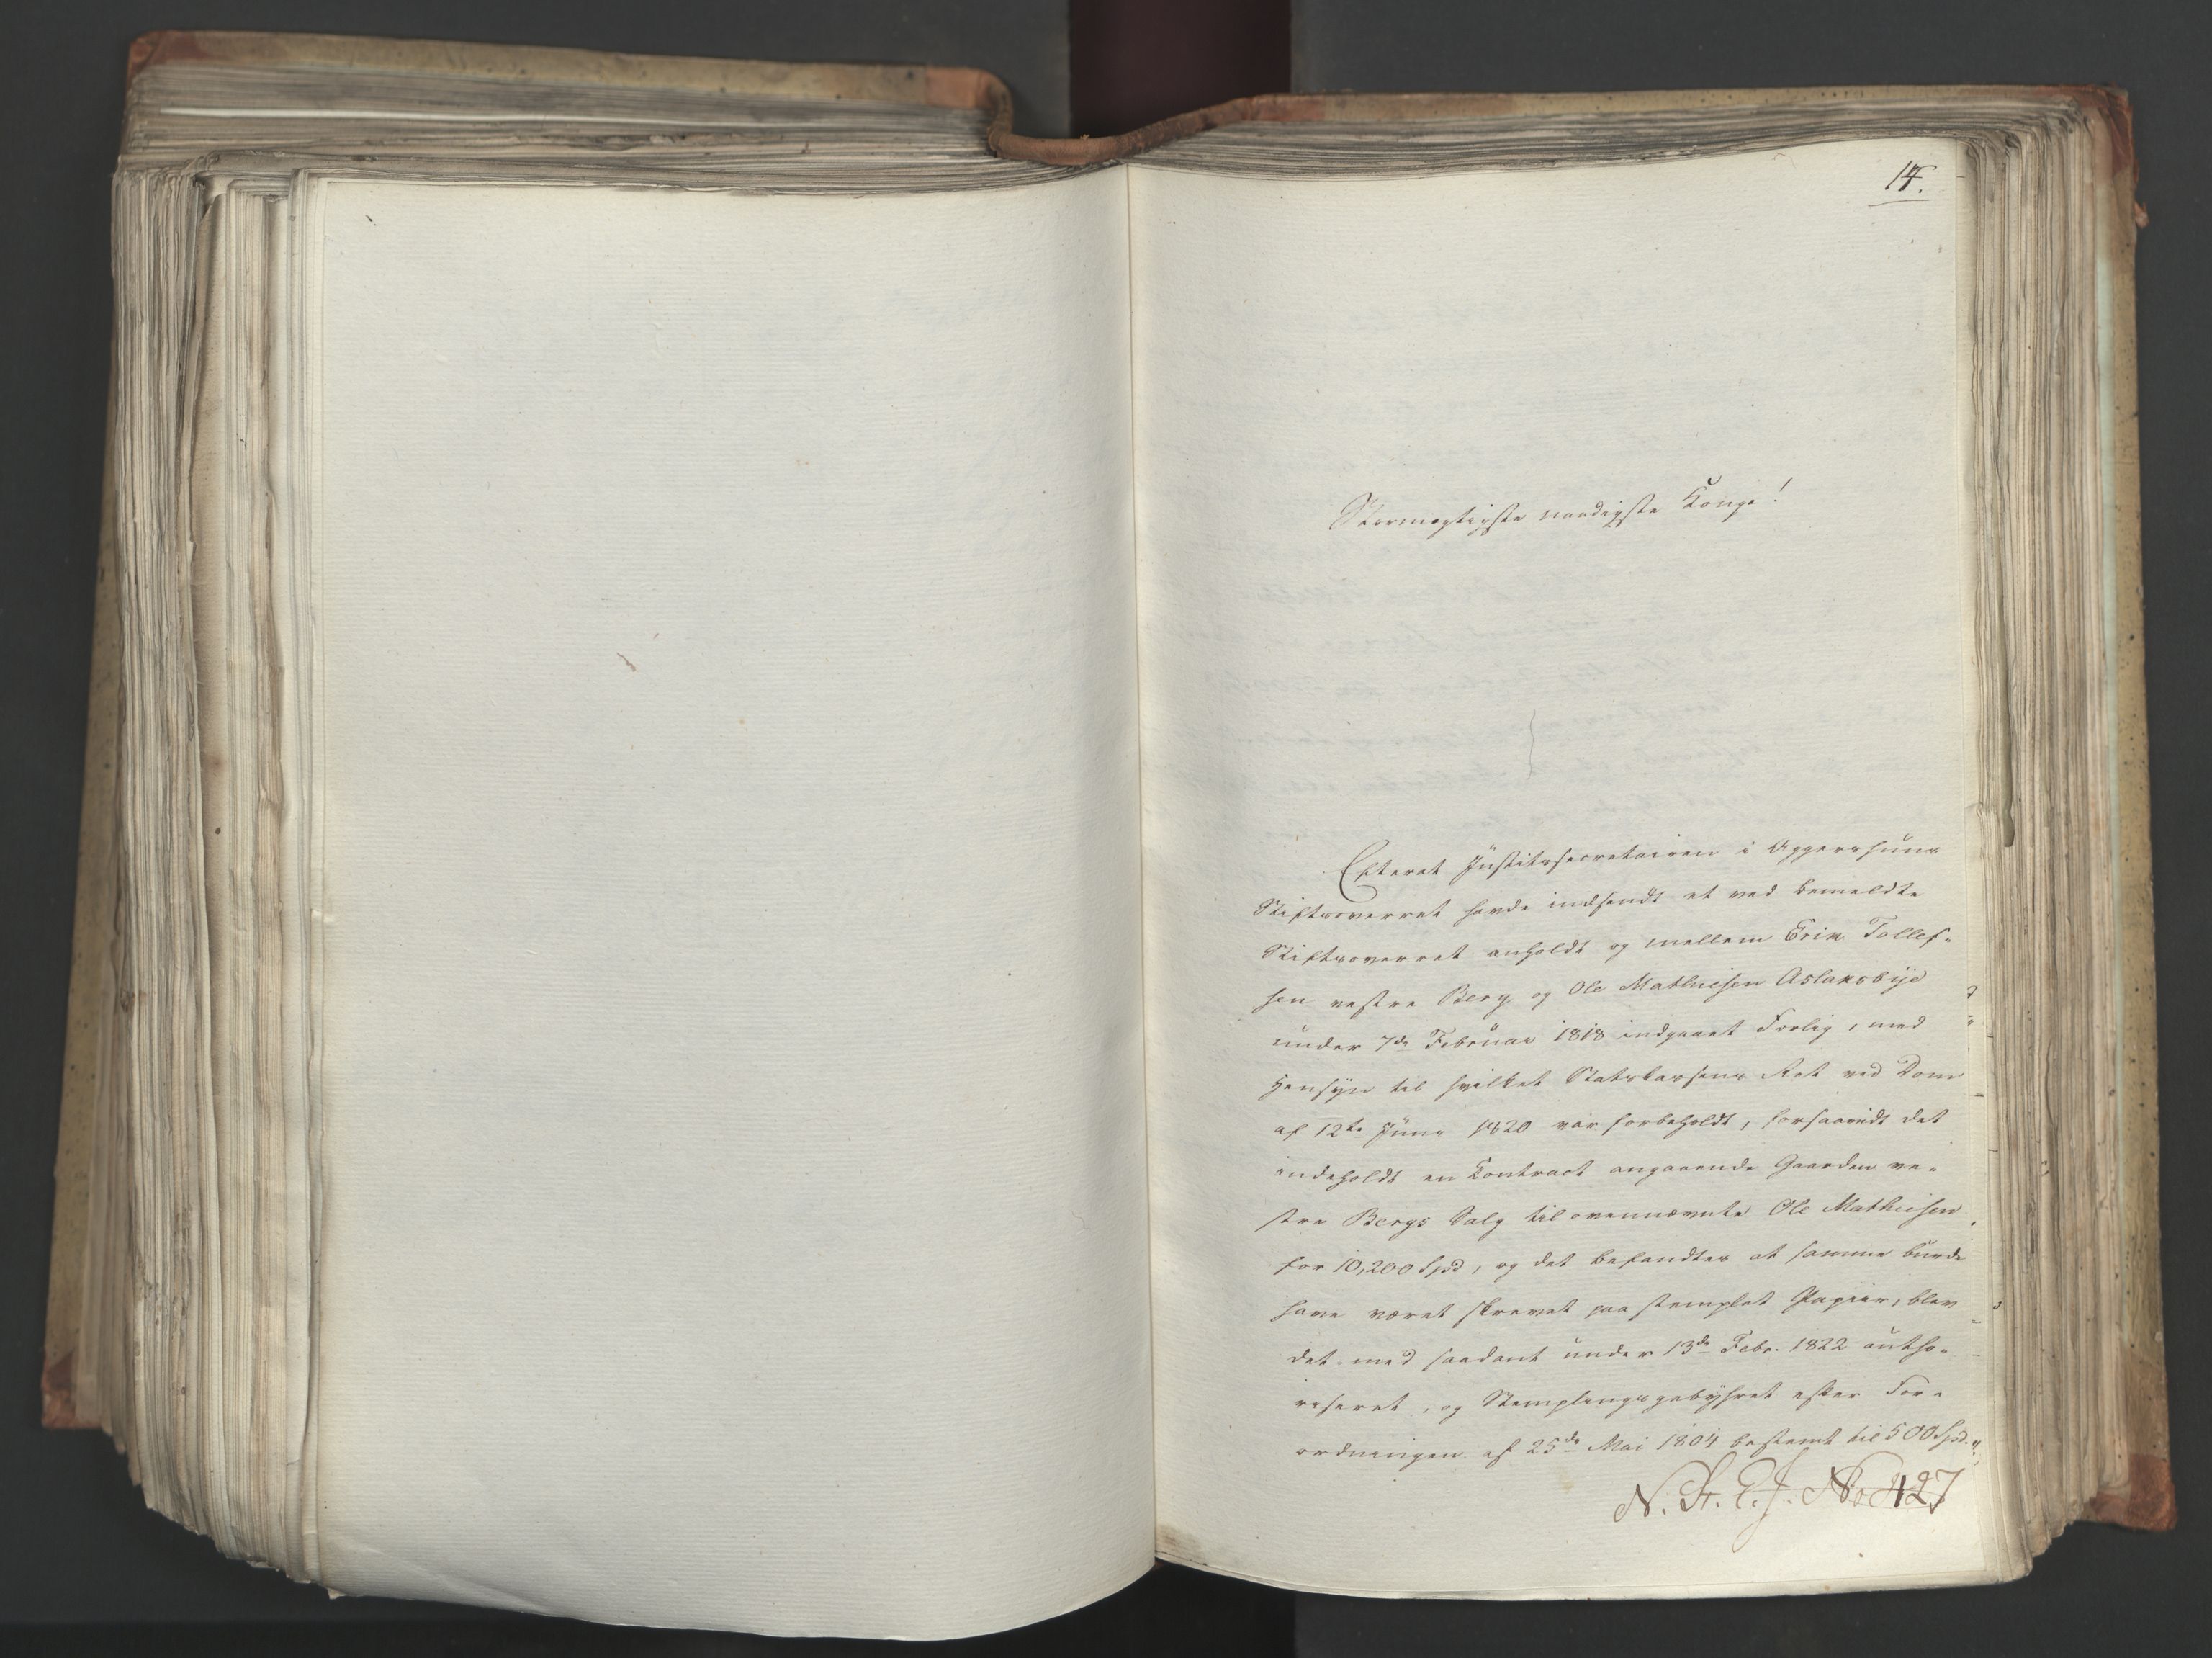 14.
Stormægtigste naadigste Konge!
Efterat Justitssecretairen i Aggershuus
Stiftsoverret havde indsendt et ved bemeldte
Stiftsoverret anholdt og mellem Erik Tollef-
sen vestre Berg og Ole Mathiesen Aslaksbye
under 7de Februar 1818 indgaaet Forlig, med
Hensyn til hvilket Statskassens Ret ved Dom
af 12te Juny 1820 var forbeholdt, forsaavidt det
indeholdt en Contract angaaende Gaarden ve-
stre Bergs Salg til ovennævnte Ole Mathiesen
for 10,200 Spd, og det befandtes at samme burde
have været skrevet paa stemplet Papiir, blev
det med saadant under 13de Febr. 1822 autho-
riseret, og Stemplingsgebyhret efter For-
ordningen af 25de Mai 1804 bestemt til 500 Spd.
N. St. E. J. No 427